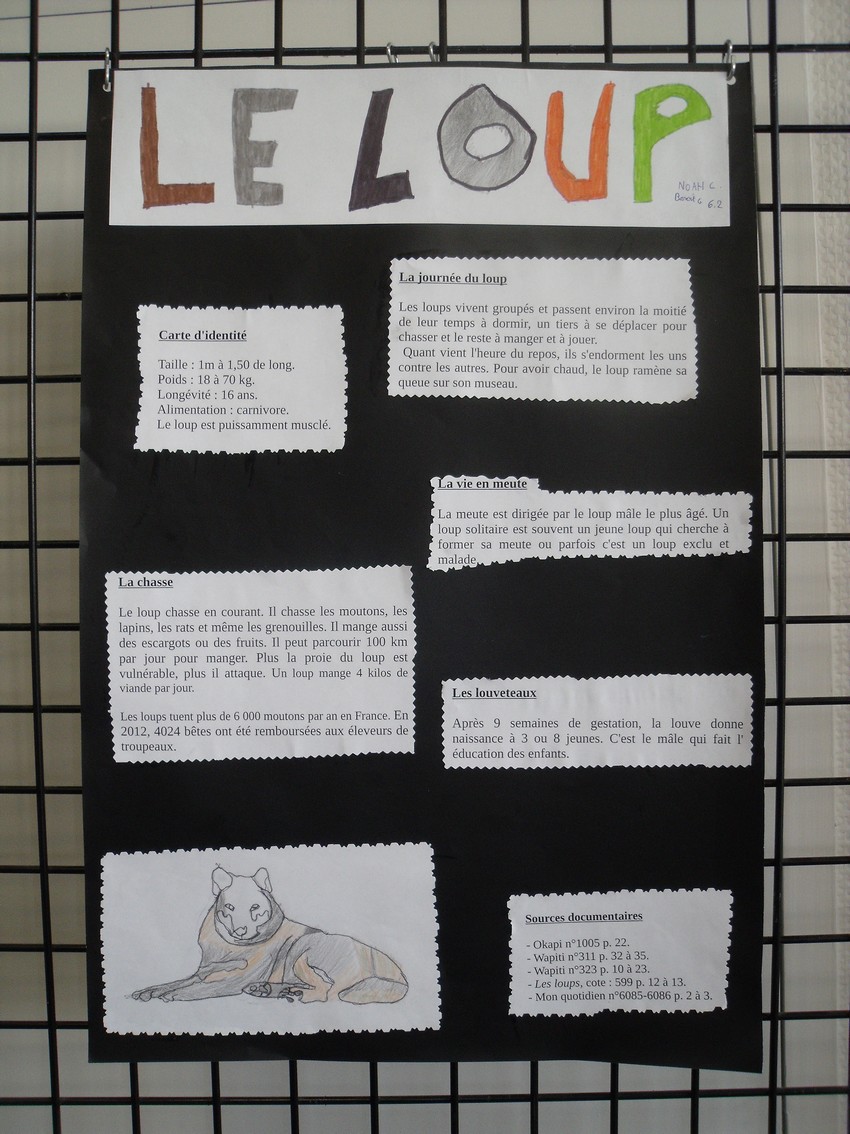 LE LOUP
NOAH C.
Benoit G 6.2
Carte d'identité
Taille : 1m à 1,50 de long.
Poids : 18 à 70 kg.
Longévité : 16 ans.
Alimentation : carnivore.
Le loup est puissamment musclé.
La journée du loup
Les loups vivent groupés et passent environ la moitié
de leur temps à dormir, un tiers à se déplacer pour
chasser et le reste à manger et à jouer.
Quant vient l'heure du repos, ils s'endorment les uns
contre les autres. Pour avoir chaud, le loup ramène sa
queue sur son museau.
La vie en meute
La meute est dirigée par le loup mâle le plus âgé. Un
loup solitaire est souvent un jeune loup qui cherche à
former sa meute ou parfois c'est un loup exclu et
malade
La chasse
Le loup chasse en courant. Il chasse les moutons, les
lapins, les rats et même les grenouilles. Il mange aussi
des escargots ou des fruits. Il peut parcourir 100 km
par jour pour manger. Plus la proie du loup est
vulnérable, plus il attaque. Un loup mange 4 kilos de
viande par jour.
Les loups tuent plus de 6 000 moutons par an en France. En
2012, 4024 bêtes ont été remboursées aux éleveurs de
troupeaux.
Les louveteaux
Après 9 semaines de gestation, la louve donne
naissance à 3 ou 8 jeunes. C'est le mâle qui fait l'
éducation des enfants.
Sources documentaires
- Okapi n°1005 p. 22.
- Wapiti n°311 p. 32 à 35.
- Wapiti n°323 p. 10 à 23.
- Les loups, cote : 599 p. 12 à 13.
- Mon quotidien n°6085-6086 p. 2 à 3.